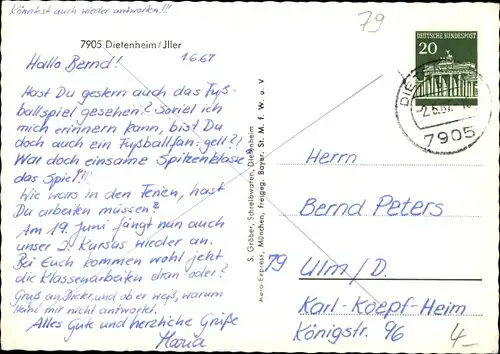 Könntest auch wieder antworten!!!
79
7905 Dietenheim/Jller
1.6.67
Hallo Bernd!
Hast Du gestern auch das Fuß-
ballspiel gesehen? Soviel ich
mich erinnern kann, bist Du
doch auch ein Fußballfan, gell?!
War doch einsame Spitzenklasse
das Spiel!!!
Wie wars in den Ferien, hast
Du arbeiten müssen?
Am 19. Juni fängt nun auch
unser 2. Kursus wieder an.
Bei Euch kommen wohl jetzt
die Klassenarbeiten dran oder?
Gruß an Dieter, und ob er weiß, warum
mir nicht antwortet.
Alles Gute und herzliche Grüße
Maria
S. Gröber, Schreibwaren, Dietenheim
Aero-Express, München, freigeg. Bayer. St. M. f. W. u. V
DEUTSCHE BUNDESPOST
20
2.6.67
7905
Herrn
Bernd Peters
79 Ulm/D.
Karl-Koepf-Heim
Königstr. 96
4-